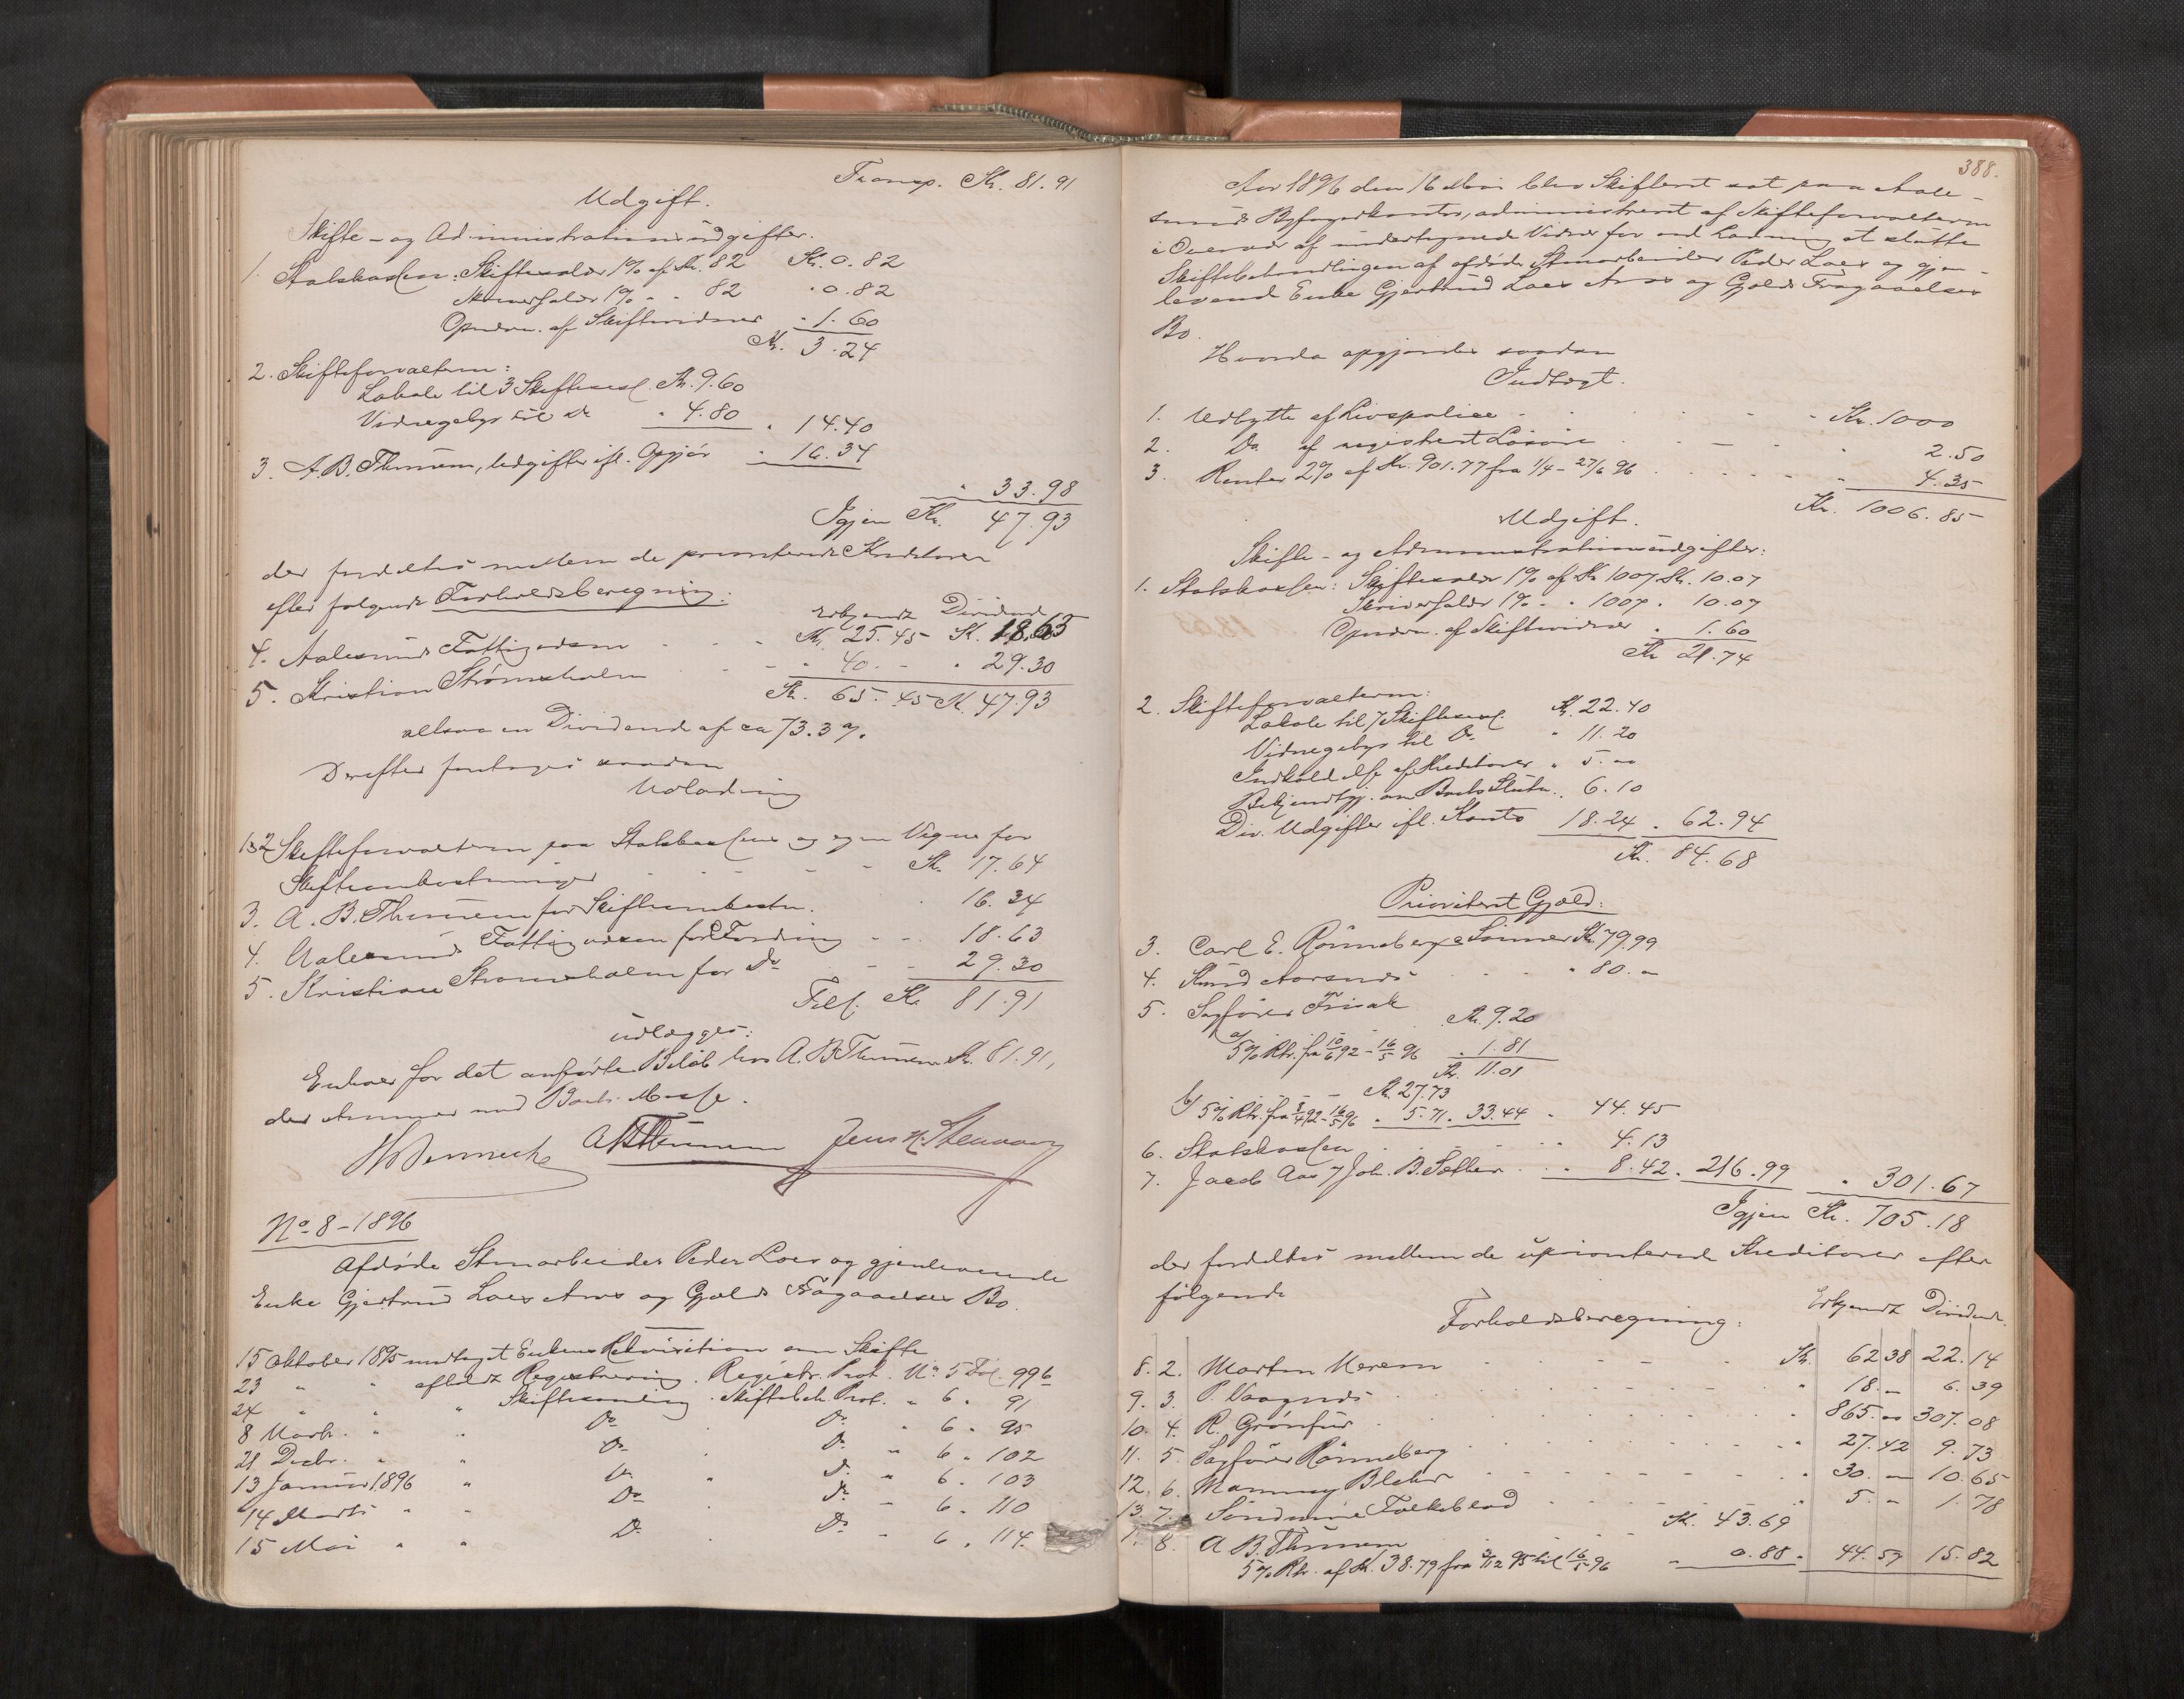 Transp. Kr. 81.91
Udgift.
Skifte- og Administrationsudgifter.
1. Statskassen: Skiftesalær 1% af Kr. 82 Kr. 0.82
Skriversalær 1% " " 82 " 0.82
Opnævn. af Skiftevidner " 1.60
Kr. 3.24
2. Skifteforvalteren:
Lokale til 3 Skiftesml. Kr. 9.60
Vidnegebyr til do " 4.80 " 14.40
3. A. B. Thunem, Udgifter ifl. Opgjør " 16.34
" 33.98
Igjen Kr. 47.93
der fordeltes mellem de prioriterede Kreditorer
efter følgende Forholdsberegning:
Erkjendt Dividende
4. Aalesunds Fattigvæsen Kr. 25.45 Kr. 18.63
5. Kristian Strømsholm " 40. - " 29.30
Kr. 65.45 Kr. 47.93
altsaa en Dividende af ca 73.3 %.
Derefter foretoges saadan
Udlodning
1 & 2 Skifteforvalteren paa Statskassens og egne Vegne for
Skifteomkostninger Kr. 17.64
3. A. B. Thunem for Skifteomkostn. 16.34
4. Aalesunds Fattigvæsen for Fordring 18.63
5. Kristian Strømsholm for do 29.30
Tils. Kr. 81.91
udlægges:
Enhver for det anførte Beløb hos A. B. Thunem Kr. 81.91,
der Summer med Boets Masse.
A B Thunem Jens
No 8 - 1896
Afdøde Stenarbeider Peder Loes og gjenlevende
Enke Gjertrud Loes Arvs og Gjælds Fragaaelses Bo.
15 Oktober 1895 modtaget Enkens Rekvisition om Skifte
23 " " afholdt Registrering. Registr. Prot. No 5 Fol. 99b
24 " " " Skiftesamling. Skiftebeh. Prot. " 6 " 91
8 Novbr. " " Do Do " 6 " 95
21 Decbr. " " Do Do " 6 " 102
13 Januar 1896 " Do " Do " 6 " 103
14 Marts " " Do Do " 6 " 110
15 Mai " " Do Do " 6 " 114.
388.
Aar 1896 den 16 Mai blev Skifteret sat paa Aale-
sunds Byfogedkontor, administreret af Skifteforvalteren
i Overvær af undertegnede Vidner for ved Lodning at slutte
Skiftebehandlingen af afdøde Stenarbeider Peder Loes og gjen-
levende Enke Gjertrud Loes Arvs og Gjælds Fragaaelses
Bo.
Hvorda opgjordes saadan
Indtægt.
1. Udbytte af Livspolice Kr. 1000
2. Do af registreret Løsøre 2.50
3. Renter 2% af Kr. 901.77 fra 1/4 - 27/6 96 4.35
Kr. 1006.85
Udgift.
Skifte- og Administrationsudgifter:
1. Statskassen: Skiftesalær 1% af Kr. 1007 Kr. 10.07
Skriversalær 1% " " 1007 " 10.07
Opnævn. af Skiftevidner " 1.60
Kr. 21.74
2. Skifteforvalteren:
Lokale til 7 Skiftesml. Kr. 22.40
Vidnegebyr til Do " 11.20
Indkaldelse af Kreditorer " 5. -
Bekjendtgj. om Boets Slutn. " 6.10
Div. Udgifter ifl. Konto 18.24 " 62.94
Kr. 84.68
Prioriteret Gjæld:
3. Carl E. Rønneberg & Sønner Kr. 79.99
4. Knud Aarsnes " 80. -
5. Sagfører Frisak
a/ Kr. 9.20
5% Rtr. fra 10/6 92 - 16/5 96 " 1.81
Kr. 11.01
b/ Kr. 27.73
5% Rtr. fra 3/4 92 - 16/5 96 " 5.71 " 33.44 " 44.45
6. Statskassen " 4.13
7. Jacob Aas / Joh. B. Sætter " 8.42 " 216.99 " 301.67
Igjen Kr. 705.18
der fordeltes mellem de uprioriterede Kreditorer efter
følgende
Forholdsberegning: Erkjendt Dividende
8. 2. Morten Merem Kr. 62 38 22.14
9. 3. P. Vaagnes " 18. - 6.39
10. 4. R. Grønfur " 865. " 307.08
11. 5. Sagfører Rønneberg " 27.42 9.73
12. 6. Blehr " 30. - 10.65
13. 7. Søndmøre Folkeblad " 5. - 1.78
1. 8. A B. Thunem Kr. 43.69
5% Rtr. af Kr. 38.79 fra 3/12 95 til 16/5 96 " 0.88 " 44.57 15.82